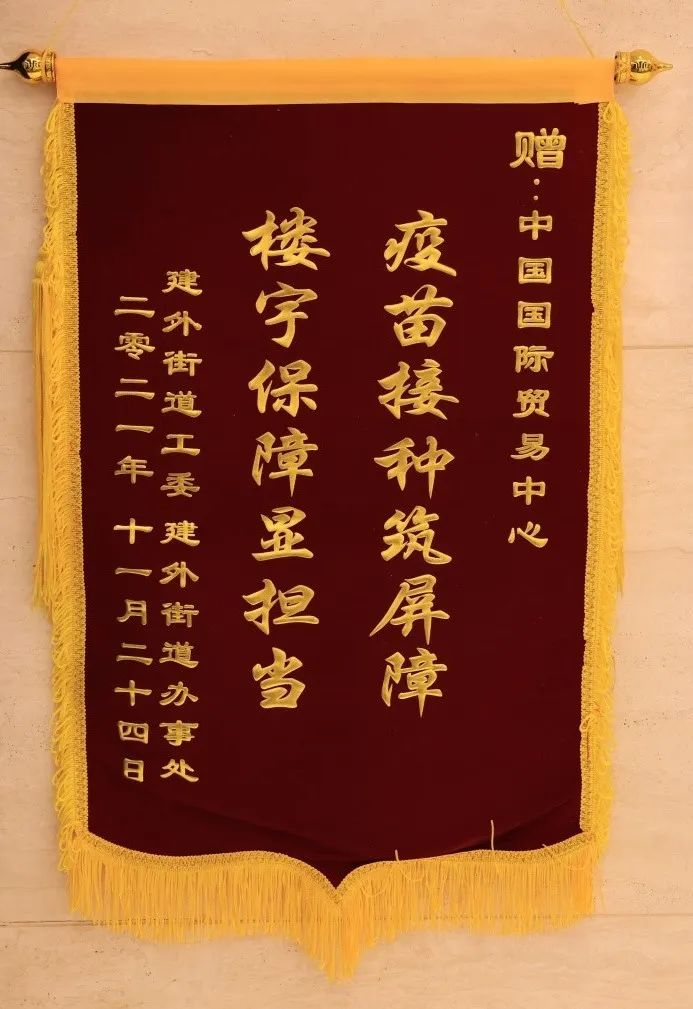 赠:中国国际贸易中心
疫苗接种筑屏障
楼宇保障显担当
建外街道工委 建外街道办事处
二零二一年 十一月二十四日